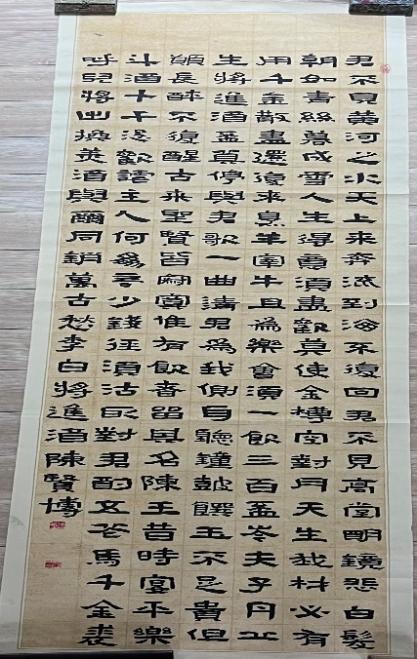 君不見黃河之水天上來奔流到海不復回君不見高堂明鏡悲白髮
朝如青絲暮成雪人生得意須盡歡莫使金樽空對月天生我材必有
用千金散盡還復來烹羊宰牛且為樂會須一飲三百盃岑夫子丹丘
生將進酒盃莫停與君歌一曲請君為我側耳聽鐘鼓饌玉不足貴但
願長醉不復醒古來聖賢皆寂寞惟有飲者留其名陳王昔時宴平樂
斗酒十千恣歡謔主人何為言少錢徑須沽取對君酌五花馬千金裘
呼兒將出換美酒與爾同銷萬古愁李白將進酒陳賢博